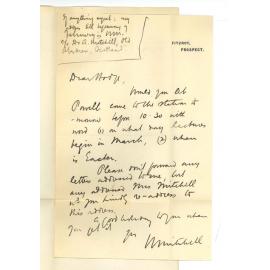 If anything urgent: my
address till beginning of
February is Mrs.
c/o Dr A. Mitchell, Old
Aberdeen, Scotland
FITZROY,
PROSPECT.
Dear Hodge,
Would you let
Powell come to the station to
-morrow before 10.30 with
word (1) on what day lectures
begin in March, (2) when
is Easter.
Please don't forward any
letters addressed to me, but
any addressed Mrs Mitchell
you kindly re-address to
this address.
A good holiday to you when
you get it
Yrs
W Mitchell